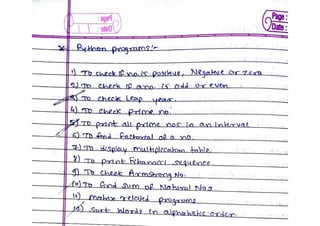 Page:
Date:
* Python programs:-
1) To check if no. is positive, Negative or zero
2) To check if a no. is odd or even.
3) To check Leap year.
4) To check prime no.
5) To print all prime nos in an Interval
6) To find Factorial of a no.
7) To display multiplication table.
8) To print Febanacci sequence.
9) To check Armstrong No.
10) To find sum of Natural Nos
11) matrix related programs.
12) Sort Words in alphabetic order.